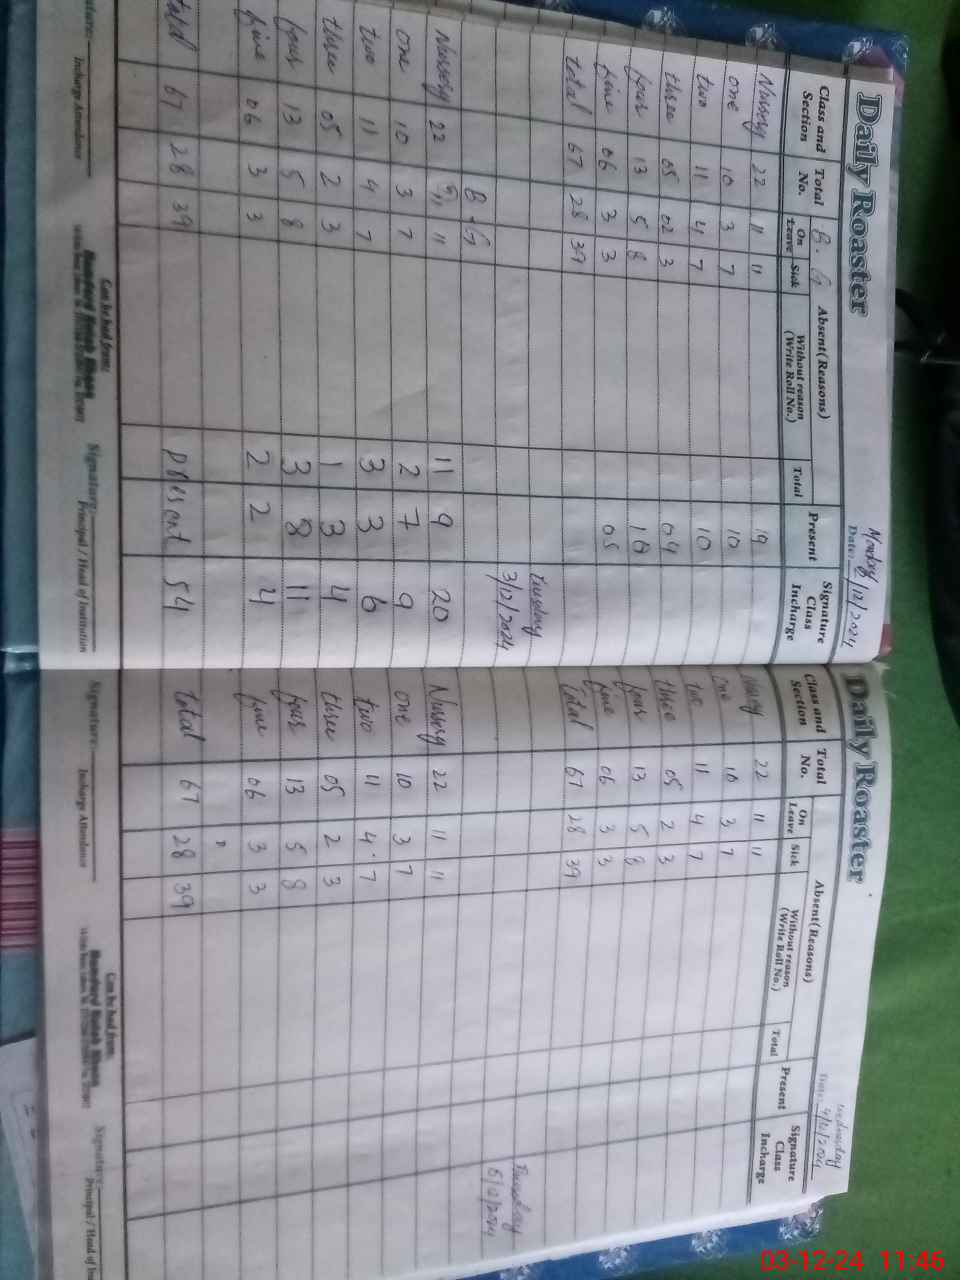 Daily Roaster
Monday
Date: 2/12/2024
Class and Section Total No. Absent (Reasons) Present Signature Class Incharge
B. G
On Leave Sick Without reason (Write Roll No.) Total
Nursery 22 11 11 19
one 10 3 7 10
two 11 4 7 10
three 05 02 3 04
four 13 5 8 10
five 06 3 3 05
total 67 28 39
Tuesday
3/12/2024
B + G
Nursery 22 11 11 11 9 20
one 10 3 7 2 7 9
two 11 4 7 3 3 6
three 05 2 3 1 3 4
four 13 5 8 3 8 11
five 06 3 3 2 2 4
total 67 28 39 present 54
Signature: Incharge Attendance
Can be had from:
Signature: Principal / Head of Institution
Daily Roaster
Wednesday
Date: 4/12/2024
Class and Section Total No. Absent (Reasons) Present Signature Class Incharge
On Leave Sick Without reason (Write Roll No.) Total
Nursery 22 11 11
one 10 3 7
two 11 4 7
three 05 2 3
four 13 5 8
five 06 3 3
total 67 28 39
Thursday
5/12/2024
Nursery 22 11 11
one 10 3 7
two 11 4 7
three 05 2 3
four 13 5 8
five 06 3 3
total 67 28 39
Signature: Incharge Attendance
Can be had from:
Signature: Principal / Head of
03-12-24 11:46